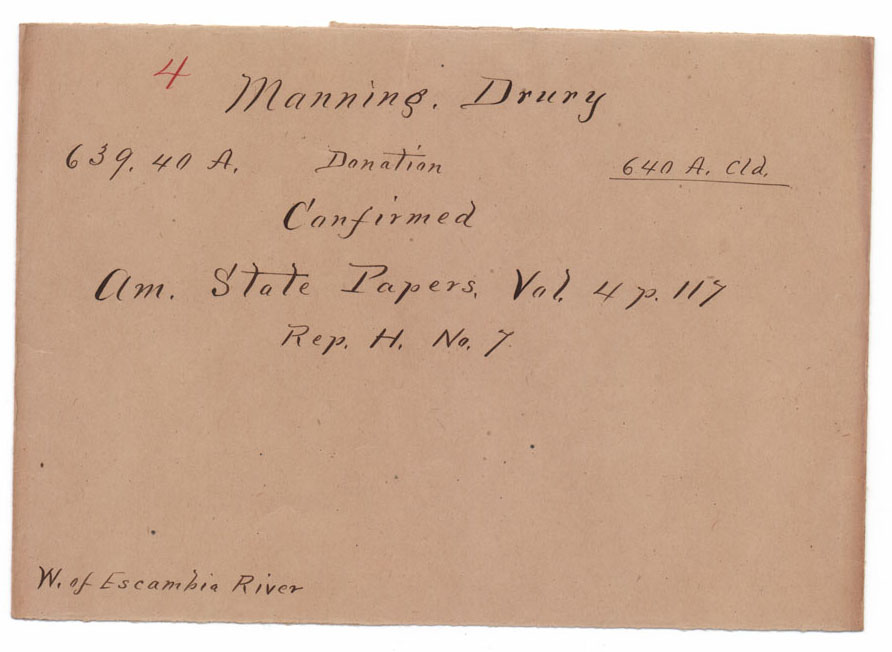 4
Manning, Drury
639.40 A. Donation 640 A. Cld.
Confirmed
Am. State Papers, Vol. 4 p. 117
Rep. H. No. 7
W. of Escambia River